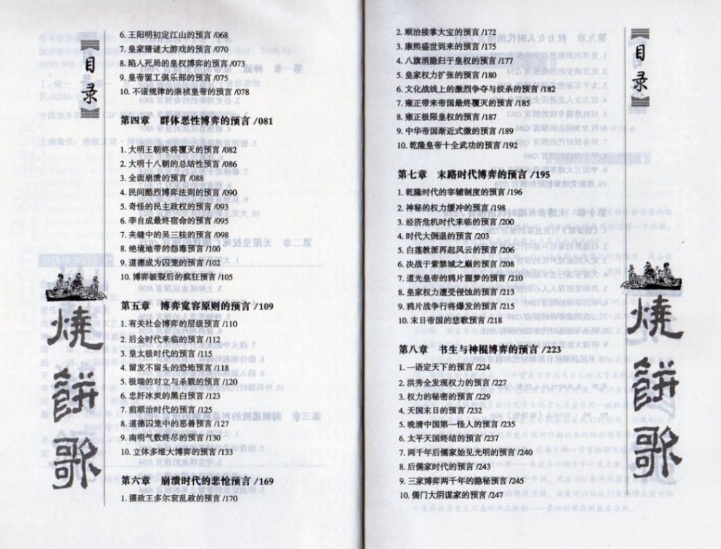 目录
6. 王阳明初定江山的预言 /068
7. 皇家猜谜大游戏的预言 /070
8. 陷入死局的皇权博弈的预言 /073
9. 皇帝罢工俱乐部的预言 /075
10. 不语规律的崇祯皇帝的预言 /078
第四章 群体恶性博弈的预言 /081
1. 大明王朝终将覆灭的预言 /082
2. 大明十八朝的总结性预言 /086
3. 全面崩溃的预言 /088
4. 民间酷烈博弈法则的预言 /090
5. 奇怪的民主政权的预言 /093
6. 李自成最终宿命的预言 /095
7. 夹缝中的吴三桂的预言 /098
8. 绝境地带的怨毒预言 /100
9. 道德成为囚笼的预言 /102
10. 博弈破裂后的疯狂预言 /105
第五章 博弈宽容原则的预言 /109
1. 有关社会博弈的层级预言 /110
2. 后金时代来临的预言 /112
3. 皇太极时代的预言 /115
4. 留发不留头的恐怖预言 /118
5. 极端的对立与杀戮的预言 /120
6. 忠奸冰炭的黑白预言 /123
7. 前顺治时代的预言 /125
8. 道德囚笼中的恶兽预言 /127
9. 南明气数终尽的预言 /130
10. 立体多维大博弈的预言 /133
第六章 崩溃时代的悲怆预言 /169
1. 摄政王多尔衮乱政的预言 /170
燒餅歌
2. 顺治接掌大宝的预言 /172
3. 康熙盛世到来的预言 /175
4. 八旗消隐归于皇权的预言 /177
5. 皇家权力扩张的预言 /180
6. 文化战线上的激烈争夺与绞杀的预言 /182
7. 雍正带来帝国最终覆灭的预言 /185
8. 雍正极限皇权的预言 /187
9. 中华帝国渐近式微的预言 /189
10. 乾隆皇帝十全武功的预言 /192
第七章 末路时代博弈的预言 /195
1. 乾隆时代的宰辅制度的预言 /196
2. 神秘的权力缓冲的预言 /198
3. 经济危机时代来临的预言 /200
4. 时代大倒退的预言 /203
5. 白莲教派再起风云的预言 /206
6. 决战于紫禁城之巅的预言 /208
7. 道光皇帝的鸦片噩梦的预言 /210
8. 皇家权力遭受侵蚀的预言 /213
9. 鸦片战争行将爆发的预言 /215
10. 末日帝国的悲歌预言 /218
第八章 书生与神棍博弈的预言 /223
1. 一语定天下的预言 /224
2. 洪秀全发现权力的预言 /227
3. 权力的秘密的预言 /229
4. 天国末日的预言 /232
5. 晚清中国第一怪人的预言 /235
6. 太平天国终结的预言 /237
7. 两千年后儒家始见光明的预言 /240
8. 后儒家时代的预言 /243
9. 三家博弈两千年的隐秘预言 /245
10. 儒门大阴谋家的预言 /247
目录
燒餅歌